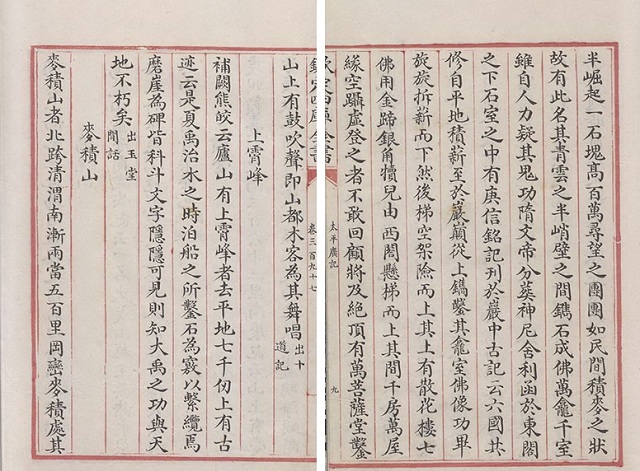 半崛起一石塊髙百萬尋望之團團如民間積麥之狀
故有此名其青雲之半峭壁之間鐫石成佛萬龕千室
雖自人力疑其鬼功隋文帝分葬神尼舍利函於東閣
之下石室之中有庾信銘記刋於巖中古記云六國共
修自平地積薪至於巖巔從上鐫鑿其龕室佛像功畢
旋旋拆薪而下然後梯空架險而上其上有散花樓七
佛用金蹄銀角犢兒由西閣懸梯而上其間千房萬屋
緣空躡虛登之者不敢回顧將及絶頂有萬菩薩堂鑿
太平廣記
九
欽定四庫全書
卷三百九十七
山上有鼓吹聲即山都木客為其舞唱出十道記
上霄峰
補闕熊皎云廬山有上霄峰者去平地七千仞上有古
迹云是夏禹治水之時泊船之所鑿石為竅以繫纜焉
磨崖為碑皆科斗文字隱隱可見則知大禹之功與天
地不朽矣出玉堂閒話
麥積山
麥積山者北跨清渭南漸兩當五百里岡巒麥積處其